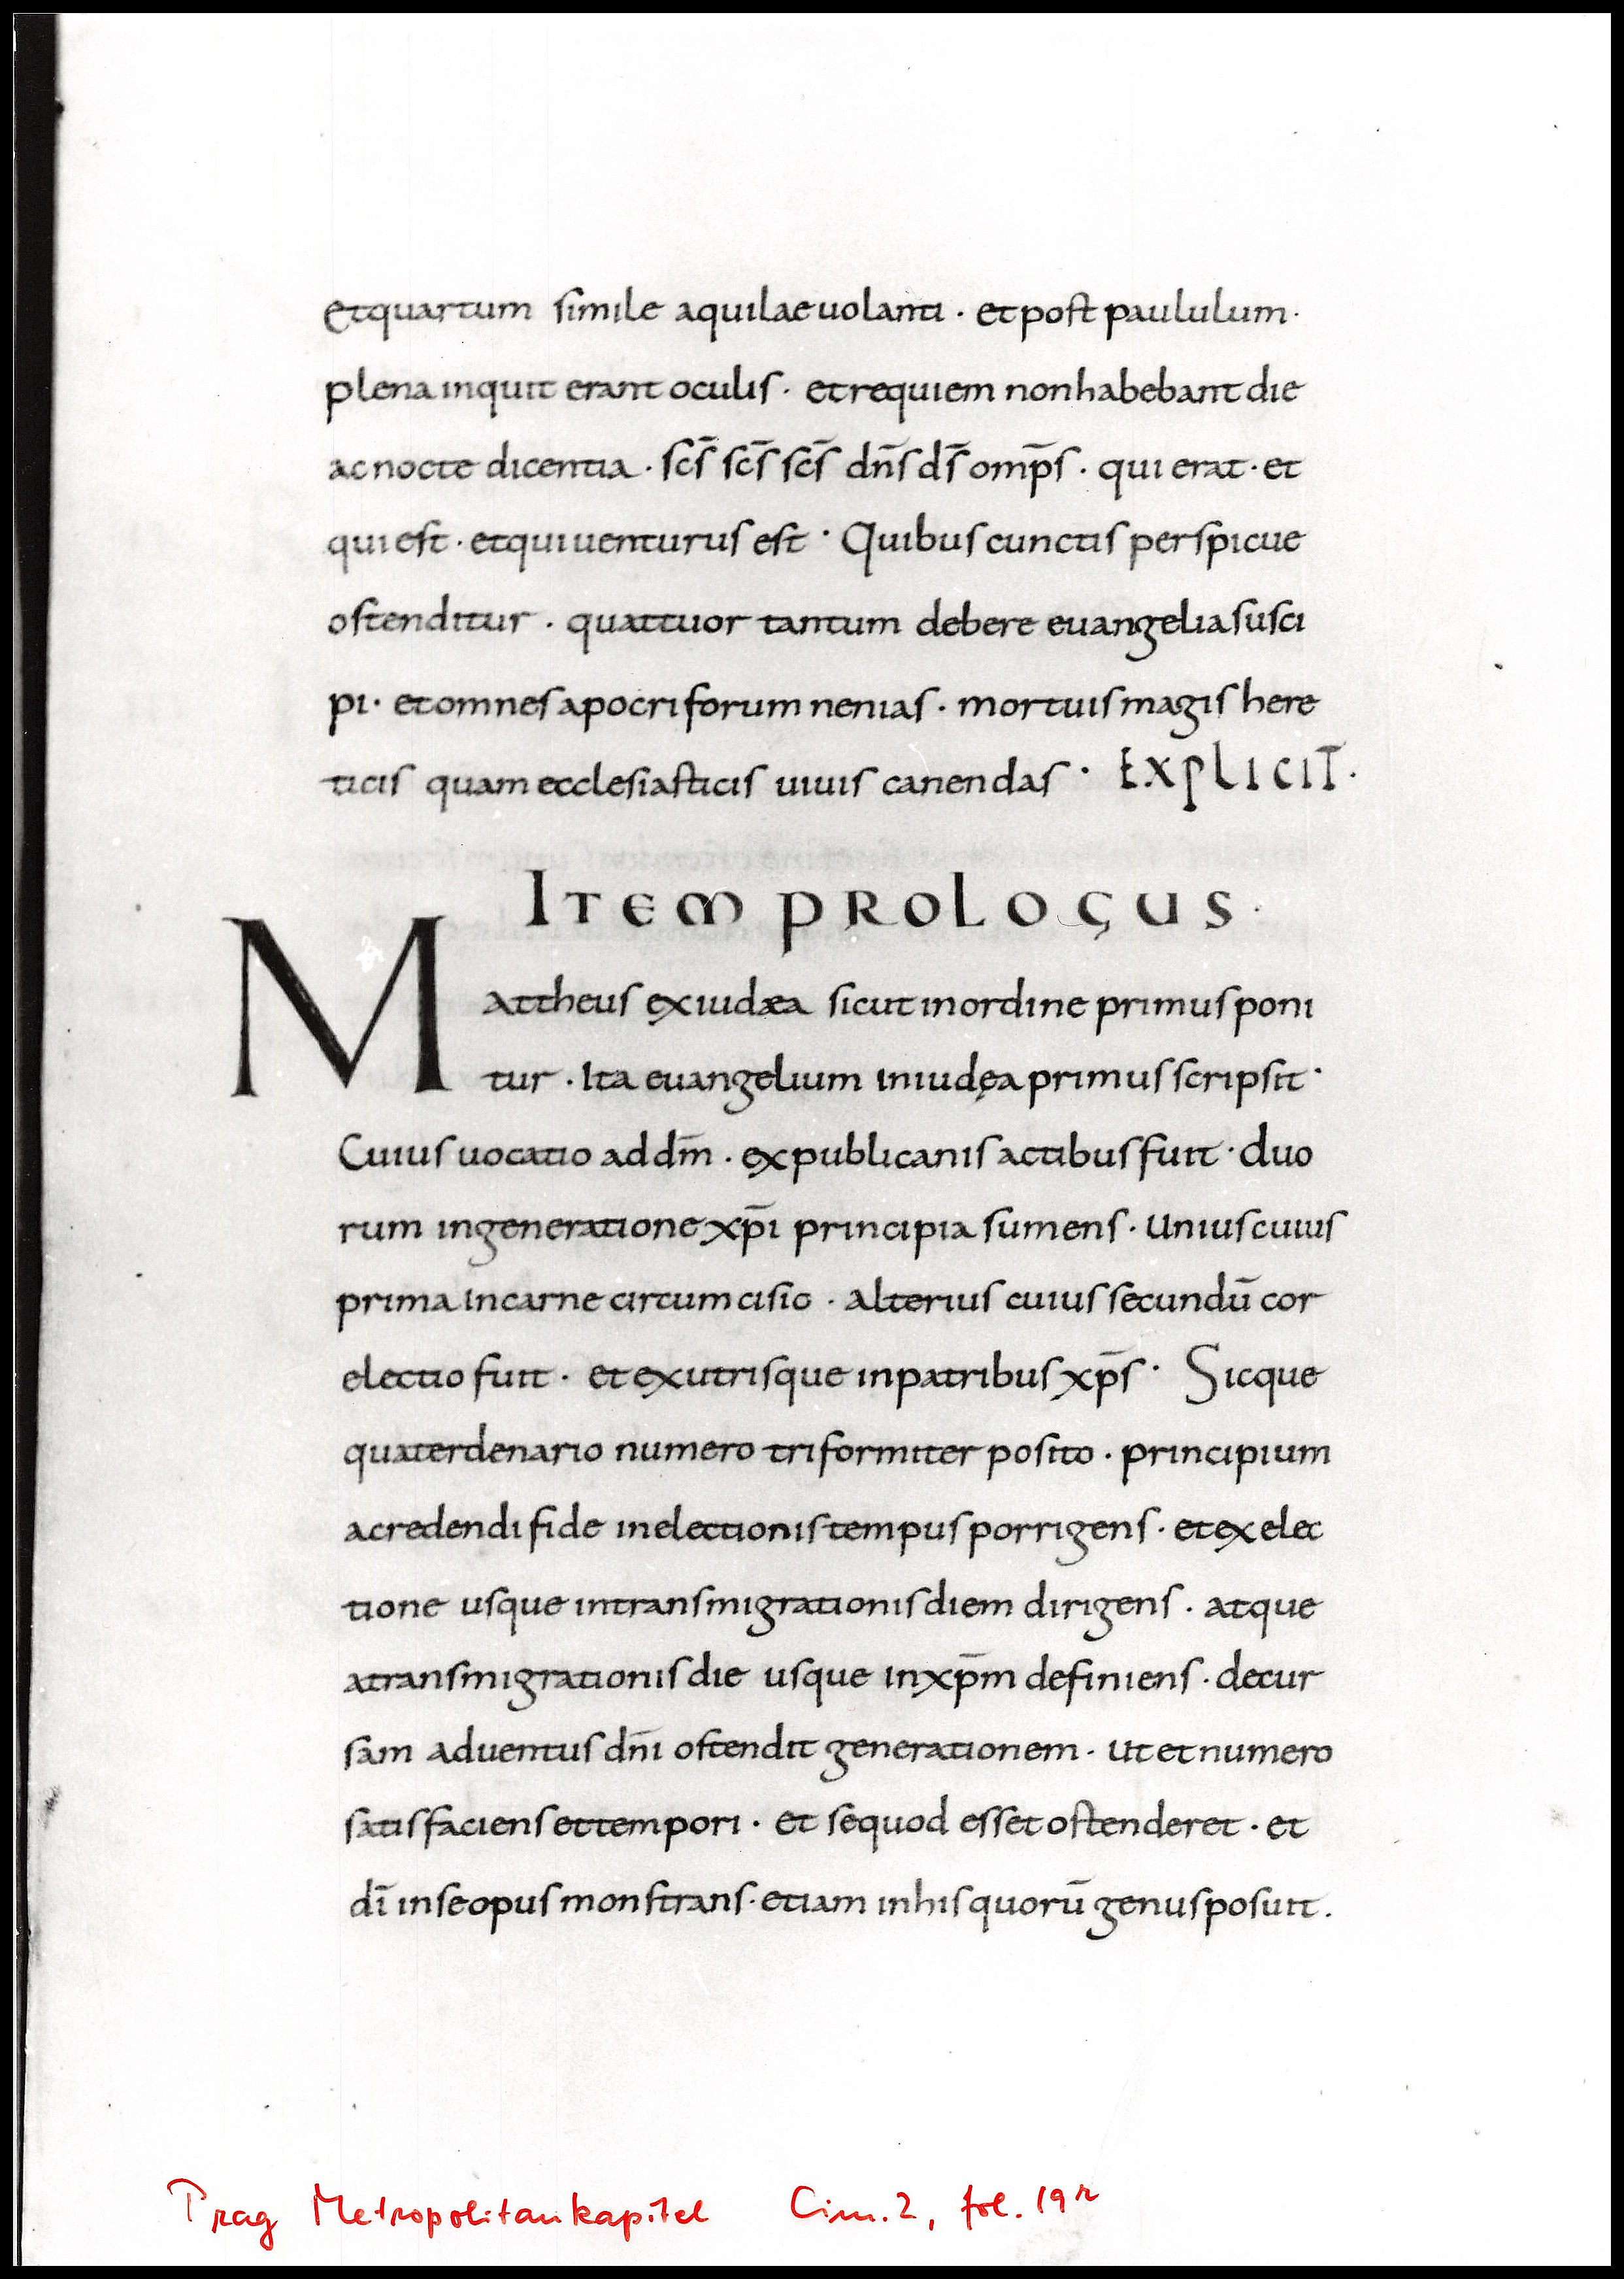 et quartum simile aquilae uolanti · et post paululum ·
plena inquit erant oculis · et requiem non habebant die
ac nocte dicentia · scs̄ scs̄ scs̄ dn̄s ds̄ omp̄s · qui erat · et
qui est · et qui uenturus est · Quibus cunctis perspicue
ostenditur · quattuor tantum debere euangelia susci
pi · et omnes apocriforum nenias · mortuis magis here
ticis quam ecclesiasticis uiuis canendas · EXPLICIT ·
ITEM PROLOGUS ·
Mattheus ex iudæa sicut in ordine primus poni
tur · Ita euangelium in iudęa primus scripsit ·
Cuius uocatio ad dm̄ · ex publicanis actibus fuit · duo
rum in generatione xp̄i principia sumens · unius cuius
prima in carne circumcisio · alterius cuius secundū cor
electio fuit · et ex utrisque in patribus xp̄s · Sicque
quaterdenario numero triformiter posito · principium
a credendi fide in electionis tempus porrigens · et ex elec
tione usque in transmigrationis diem dirigens · atque
a transmigrationis die usque in xp̄m definiens · decur
sam aduentus dn̄i ostendit generationem · ut et numero
satisfaciens et tempori · et se quod esset ostenderet · et
dī in se opus monstrans · etiam in his quorū genus posuit .
Prag Metropolitankapitel Cim. 2, fol. 19r